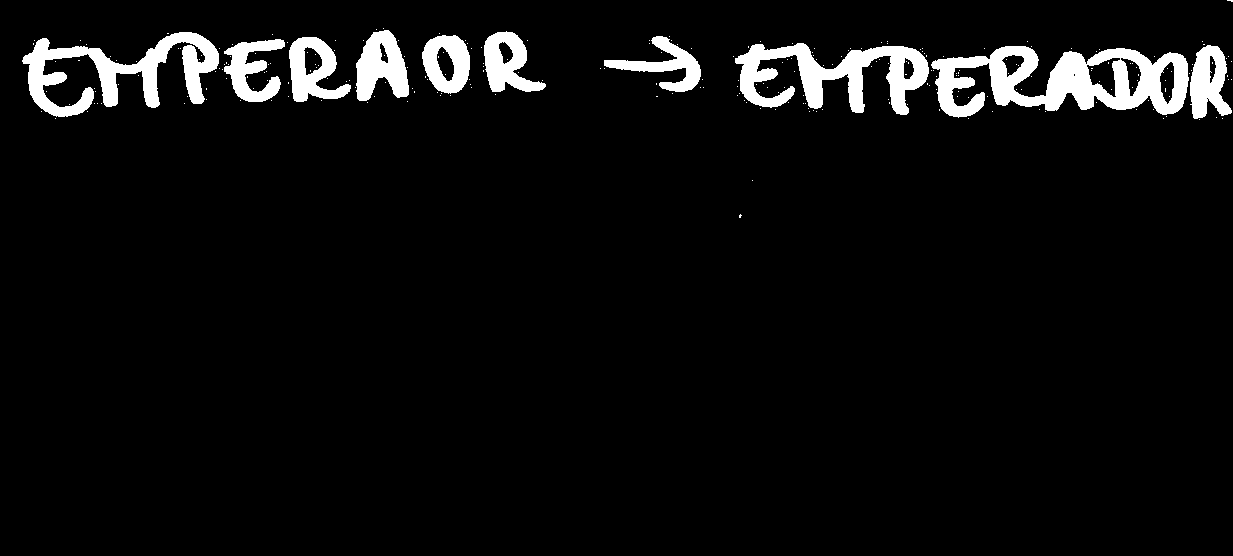 EMPERAOR → EMPERADOR